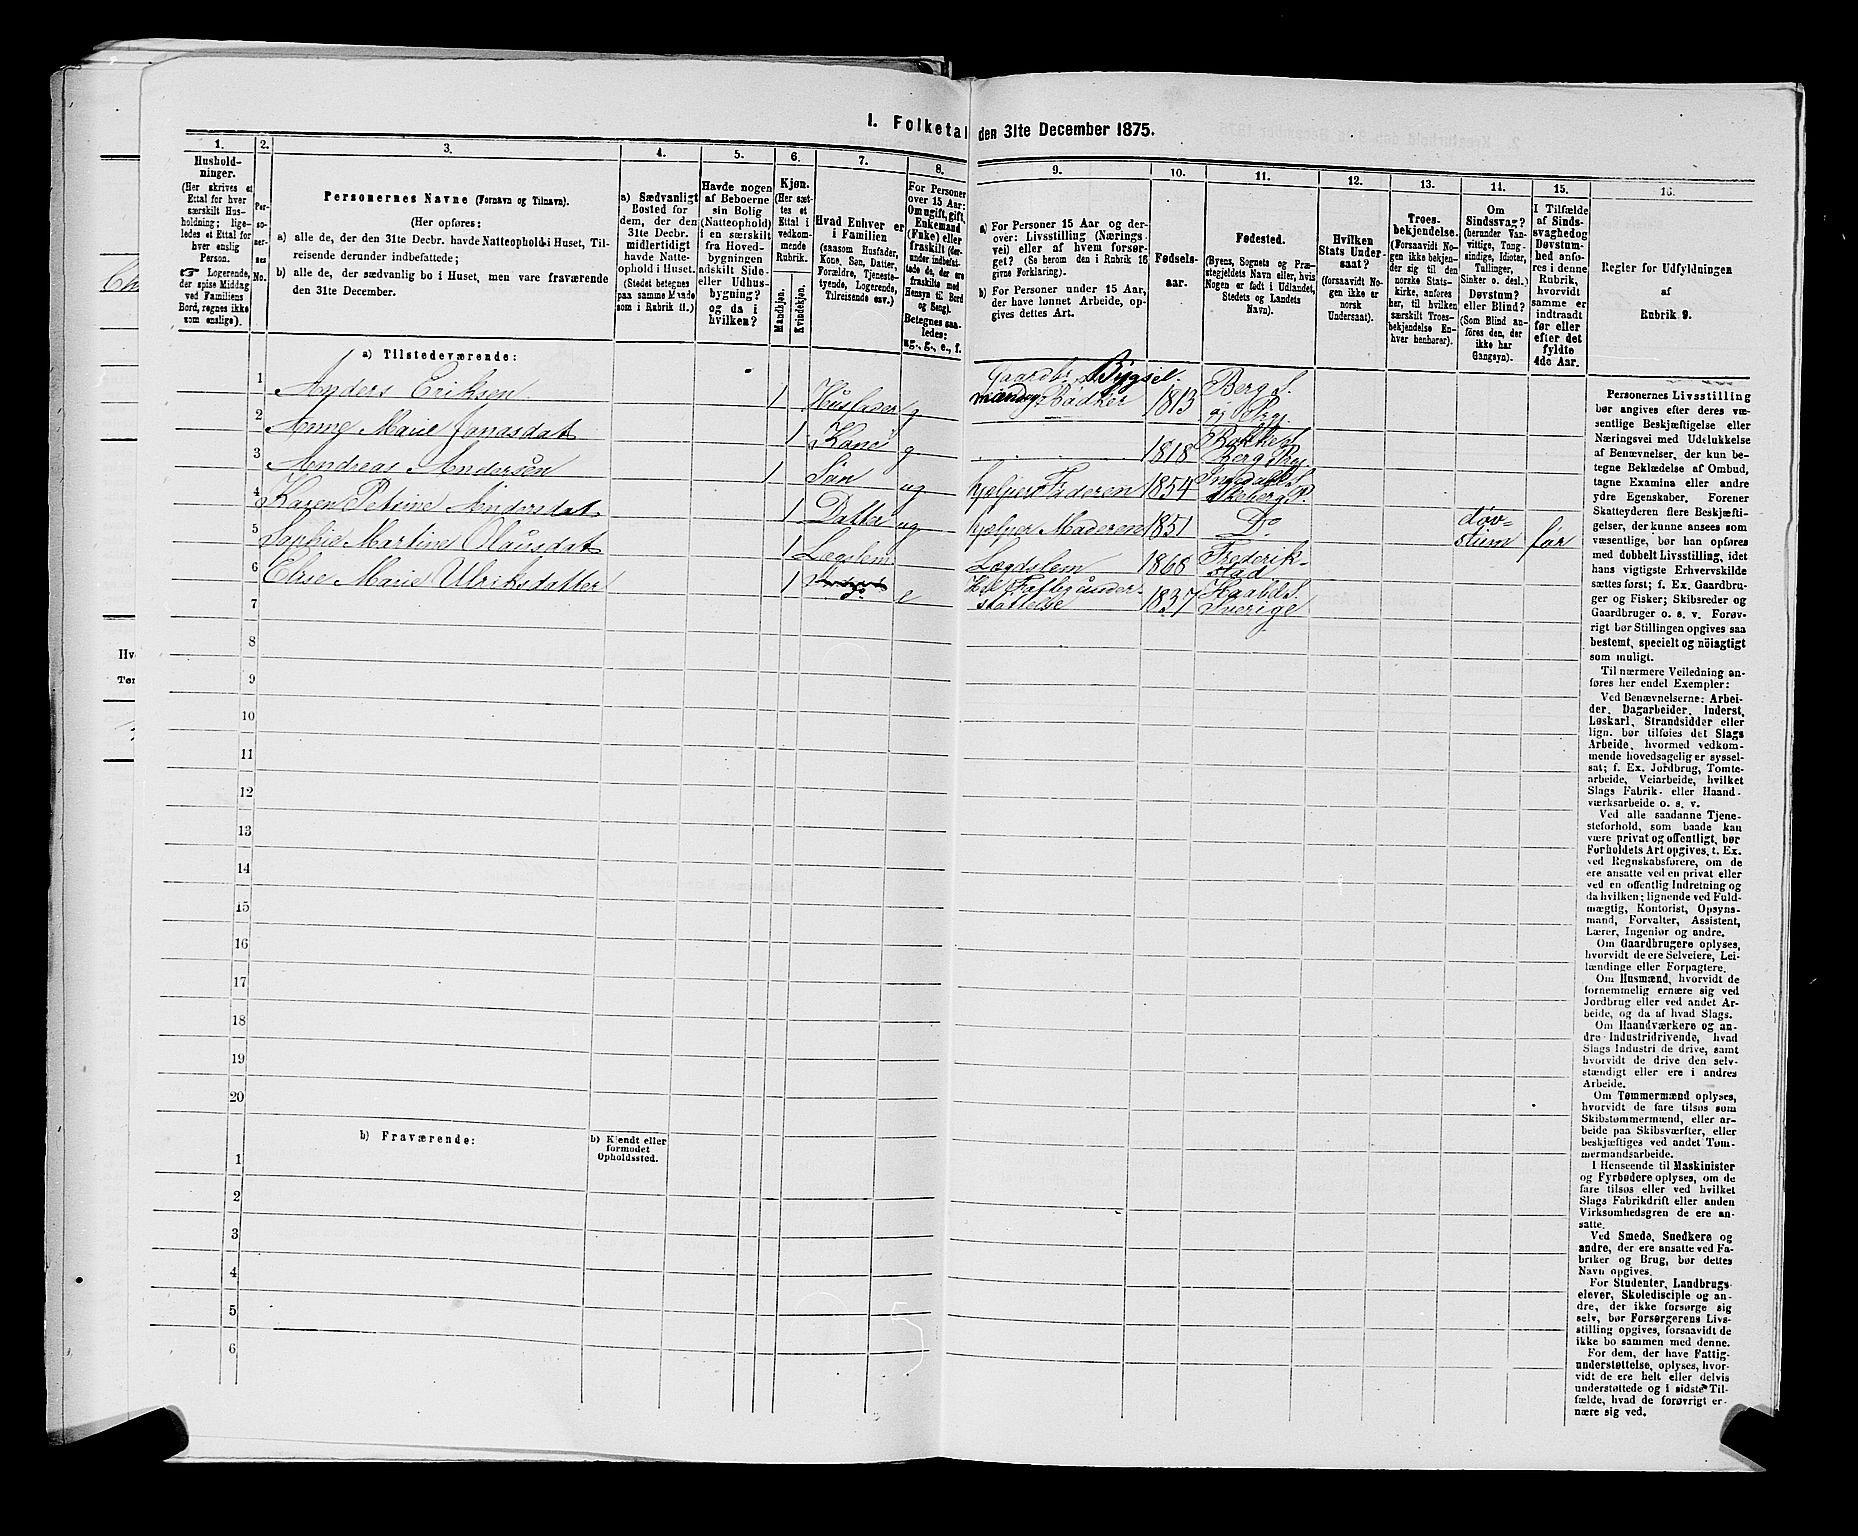 I. Folketal den 31te December 1875.
1.
Hushold-
ninger.
(Her skrives et
Ettal for hver
særskilt Hus-
holdning; lige-
ledes et Ettal for
hver enslig
Person.
☞ Logerende,
der spise Middag
ved Familiens
Bord, regnes ikke
som enslige).
2.
Per-
so-
ner-
nes
No.
3.
Personernes Navne (Fornavn og Tilnavn).
(Her opføres:
a) alle de, der den 31te Decbr. havde Natteophold i Huset, Til-
reisende derunder indbefattede;
b) alle de, der sædvanlig bo i Huset, men vare fraværende
den 31te December.
4.
a) Sædvanligt
Bosted for
dem, der den
31te Decbr.
midlertidigt
havde Natte-
ophold i Huset.
(Stedet betegnes
paa samme Maade
som i Rubrik 11.)
5.
Havde nogen
af Beboerne
sin Bolig
(Natteophold)
i en særskilt
fra Hoved-
bygningen
adskilt Side-
eller Udhus-
bygning?
og da i
hvilken?
6.
Kjøn.
(Her sæt-
tes et
Ettal i
vedkom-
mende
Rubrik.
Mandkjøn.
Kvindekjøn.
7.
Hvad Enhver er
i Familien
(saasom Husfader,
Kone, Søn, Datter,
Forældre, Tjeneste-
tyende, Logerende,
Tilreisende osv.)
8.
For Personer
over 15 Aar:
Om ugift, gift,
Enkemand
(Enke) eller
fraskilt (der-
under indbefat-
tede de, der ere
fraskilte med
Hensyn til Bord
og Seng).
Betegnes saa-
ledes:
ug., g., e., f.
9.
a) For Personer 15 Aar og der-
over: Livsstilling (Nærings-
vei) eller af hvem forsør-
get? (Se herom den i Rubrik 16
givne Forklaring).
b) For Personer under 15 Aar,
der have lønnet Arbeide, op-
gives dettes Art.
10.
Fødsels-
aar.
11.
Fødested.
(Byens, Sognets og Præ-
stegjeldets Navn eller, hvis
Nogen er født i Udlandet,
Stedets og Landets
Navn).
12.
Hvilken
Stats Under-
saat?
(forsaavidt No-
gen ikke er
norsk
Undersaat).
13.
Troes-
bekjendelse.
(Forsaavidt No-
gen ikke bekjen-
der sig til den
norske Stats-
kirke, anføres
her, til hvilken
særskilt Troes-
bekjendelse En-
hver henhører).
14.
Om
Sindssvag?
(herunder Van-
vittige, Tung-
sindige, Idioter,
Tullinger,
Sinker o. desl.)
Døvstum?
eller Blind?
(Som Blind an-
føres den, der
ikke har
Gangsyn).
15.
I Tilfælde
af Sinds-
svaghed og
Døvstum-
hed anfø-
res i denne
Rubrik,
hvorvidt
samme er
indtraadt
før eller
efter det
fyldte
4de Aar.
16.
Regler for Udfyldningen
af
Rubrik 9.
a) Tilstedeværende:
1 Anders Eriksen 1 Husfader g Gaardbr. Bygsel-
mand og Rødker 1813 Berg S.
og Prgj.
2 Anne Marie Jonasdat 1 Kone g 1818 Rokke S.
Berg Prgj.
3 Andreas Andersen 1 Søn ug hjælper Faderen 1854 Ingedahl S.
Skeberg P.
4 Karen Petrine Andersdat 1 Datter ug hjælper Moderen 1851 Do døv-
stum før
5 Sophie Martine Olausdat 1 Lægslem Lægdslem 1868 Frederik-
stad
6 Elise Marie Ulriksdatter 1 e Fattigunder-
støttelse 1837 Haabøl S.
Sverige
7
8
9
10
11
12
13
14
15
16
17
18
19
20
b) Fraværende:
b) Kjendt eller
formodet
Opholdssted.
1
2
3
4
5
6
Personernes Livsstilling
bør angives efter deres væ-
sentlige Beskjæftigelse eller
Næringsvei med Udelukkelse
af Benævnelser, der kun be-
tegne Beklædelse af Ombud,
tagne Examina eller andre
ydre Egenskaber. Forener
Skatteyderen flere Beskjæfti-
gelser, der kunne ansees som
væsentlige, bør han opføres
med dobbelt Livsstilling, idet
hans vigtigste Erhvervskilde
sættes først; f. Ex. Gaardbru-
ger og Fisker; Skibsreder og
Gaardbruger o. s. v. Forøv-
rigt bør Stillingen opgives saa
bestemt, specielt og nöiagtigt
som muligt.
Til nærmere Veiledning an-
føres her endel Exempler:
Ved Benævnelserne: Arbei-
der, Dagarbeider, Inderst,
Løskarl, Strandsidder eller
lign. bør tilføies det Slags
Arbeide, hvormed vedkom-
mende hovedsagelig er syssel-
sat; f. Ex. Jordbrug, Tomte-
arbeide, Veiarbeide, hvilket
Slags Fabrik- eller Haand-
værksarbeide o. s. v.
Ved alle saadanne Tjene-
steforhold, som baade kan
være privat og offentligt, bør
Forholdets Art opgives, t. Ex.
ved Regnskabsførere, om de
ere ansatte ved en privat eller
ved en offentlig Indretning og
da hvilken; lignende ved Fuld-
mægtig, Kontorist, Opsyns-
mand, Forvalter, Assistent,
Lærer, Ingeniør og andre.
Om Gaardbrugere oplyses,
hvorvidt de ere Selveiere, Lei-
lændinge eller Forpagtere.
Om Husmænd, hvorvidt de
fornemmelig ernære sig ved
Jordbrug eller ved andet Ar-
beide, og da af hvad Slags.
Om Haandværkere og an-
dre Industridrivende, hvad
Slags Industri de drive, samt
hvorvidt de drive den selv-
stændigt eller ere i andres
Arbeide.
Om Tømmermænd oplyses,
hvorvidt de fare tilsøs som
Skibstømmermænd, eller ar-
beide paa Skibsværfter, eller
beskjæftiges ved andet Tøm-
mermandsarbeide.
I Henseende til Maskinister
og Fyrbødere oplyses, om de
fare tilsøs eller ved hvilket
Slags Fabrikdrift eller anden
Virksomhedsgren de ere an-
satte.
Ved Smede, Snedkere og
andre, der ere ansatte ved Fa-
briker og Brug, bør dettes
Navn opgives.
For Studenter, Landbrugs-
elever, Skoledisciple og an-
dre, der ikke forsørge sig
selv, bør Forsørgerens Livs-
stilling opgives, forsaavidt de
ikke bo sammen med denne.
For dem, der have Fattig-
understøttelse, oplyses, hvor-
vidt de ere helt eller delvis
understøttede og i sidste Til-
fælde, hvad de forøvrigt er-
nære sig ved.